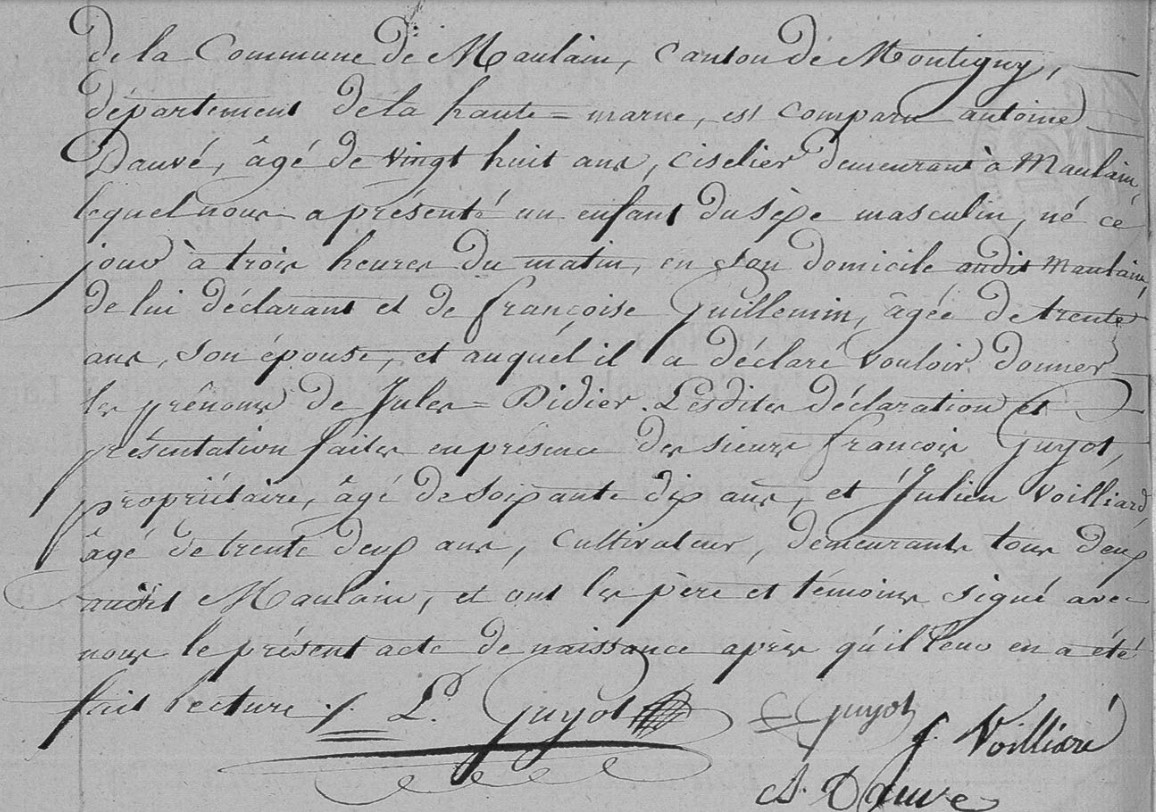 de la Commune de Maulain, Canton de Montigny,
département de la haute=marne, est comparu antoine
Dauvé, âgé de vingt huit ans, ciselier demeurant à Maulain,
lequel nous a présenté un enfant du sèxe masculin, né ce
jour à trois heures du matin, en son domicile audit Maulain,
de lui déclarant et de françoise Guillemin, âgée de trente
ans, son épouse, et auquel il a déclaré vouloir donner
les prénoms de Jules=Didier. Lesdites déclaration et
présentation faites en présence des sieurs françois Guyot,
propriétaire, âgé de soixante dix ans, et Julien Voilliard,
âgé de trente deux ans, cultivateur, demeurants tous deux
audit Maulain, et ont les père et témoins signé avec
nous le présent acte de naissance après qu'il leur en a été
fait lecture ./. L. Guyot
Guyot
J. Voilliard
A. Dauvé